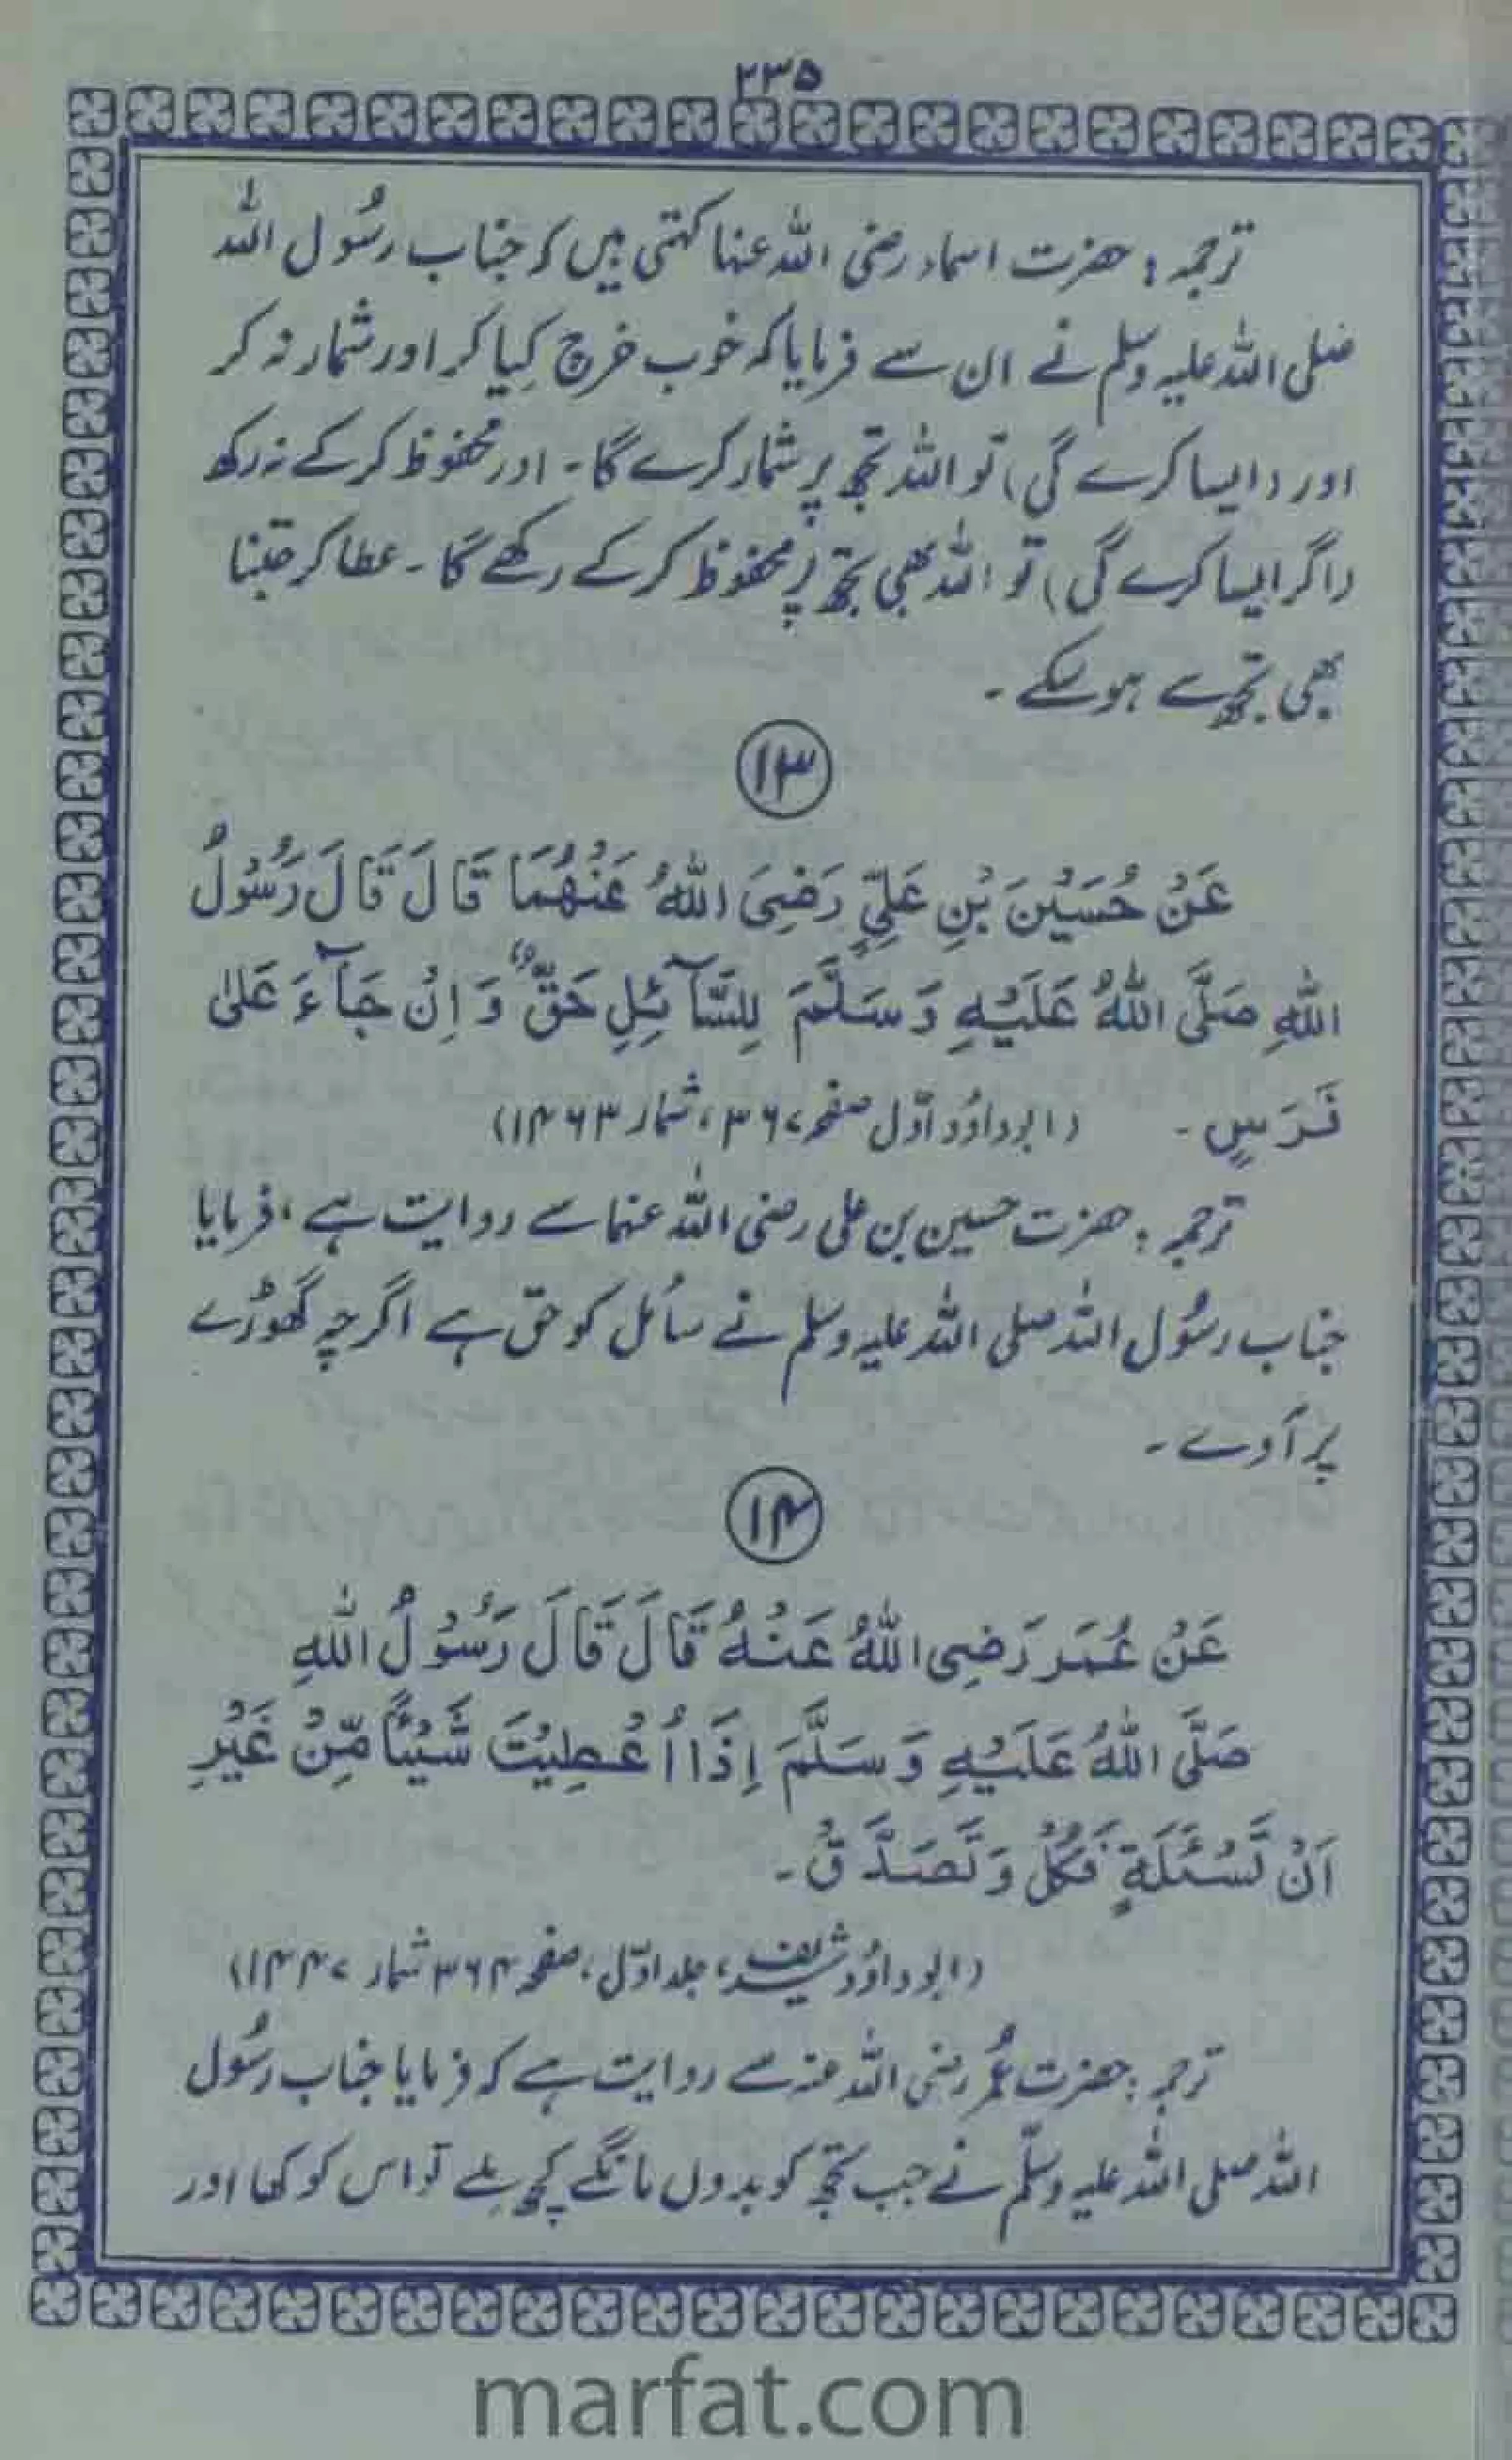 ۲۳۵
ترجمہ : حضرت اسماء رضی اللہ عنہا کہتی ہیں کہ جناب رسُول اللہ
صلی اللہ علیہ وسلم نے ان سے فرمایا کہ خوب خرچ کِیا کر اور شمار نہ کر
اور (ایسا کرے گی) تو اللہ تجھ پر شمار کرے گا۔ اور محفوظ کرکے نہ رکھ
(اگر ایسا کرے گی) تو اللہ بھی تجھ پر محفوظ کرکے رکھے گا۔ عطا کر جتنا
بھی تجھ سے ہوسکے۔
۱۳
عَنْ حُسَيْنَ بْنِ عَلِيٍّ رَضِيَ اللّٰهُ عَنْهُمَا قَالَ قَالَ رَسُوْلُ
اللّٰهِ صَلَّى اللّٰهُ عَلَيْهِ وَسَلَّمَ لِلسَّآئِلِ حَقٌّ وَاِنْ جَآءَ عَلٰى
فَرَسٍ۔ (ابوداؤد اوّل صفحہ ۳۶۷، شمار ۱۴۶۳)
ترجمہ : حضرت حسین بن علی رضی اللہ عنہما سے روایت ہے، فرمایا
جناب رسُول اللہ صلی اللہ علیہ وسلم نے سائل کو حق ہے اگرچہ گھوڑے
پر آوے۔
۱۴
عَنْ عُمَرَ رَضِى اللّٰهُ عَنْهُ قَالَ قَالَ رَسُوْلُ اللّٰهِ
صَلَّى اللّٰهُ عَلَيْهِ وَسَلَّمَ اِذَا اُعْطِيْتَ شَيْئًا مِّنْ غَيْرِ
اَنْ تَسْئَلَةٍ فَكُلْ وَتَصَدَّقْ۔
(ابوداؤد شریف، جلد اوّل، صفحہ ۳۶۴ شمار ۱۴۴۷)
ترجمہ : حضرت عُمر رضی اللہ عنہ سے روایت ہے کہ فرمایا جناب رسُول
اللہ صلی اللہ علیہ وسلّم نے جب تجھ کو بدوں مانگے کچھ ملے تو اس کو کھا اور
marfat.com